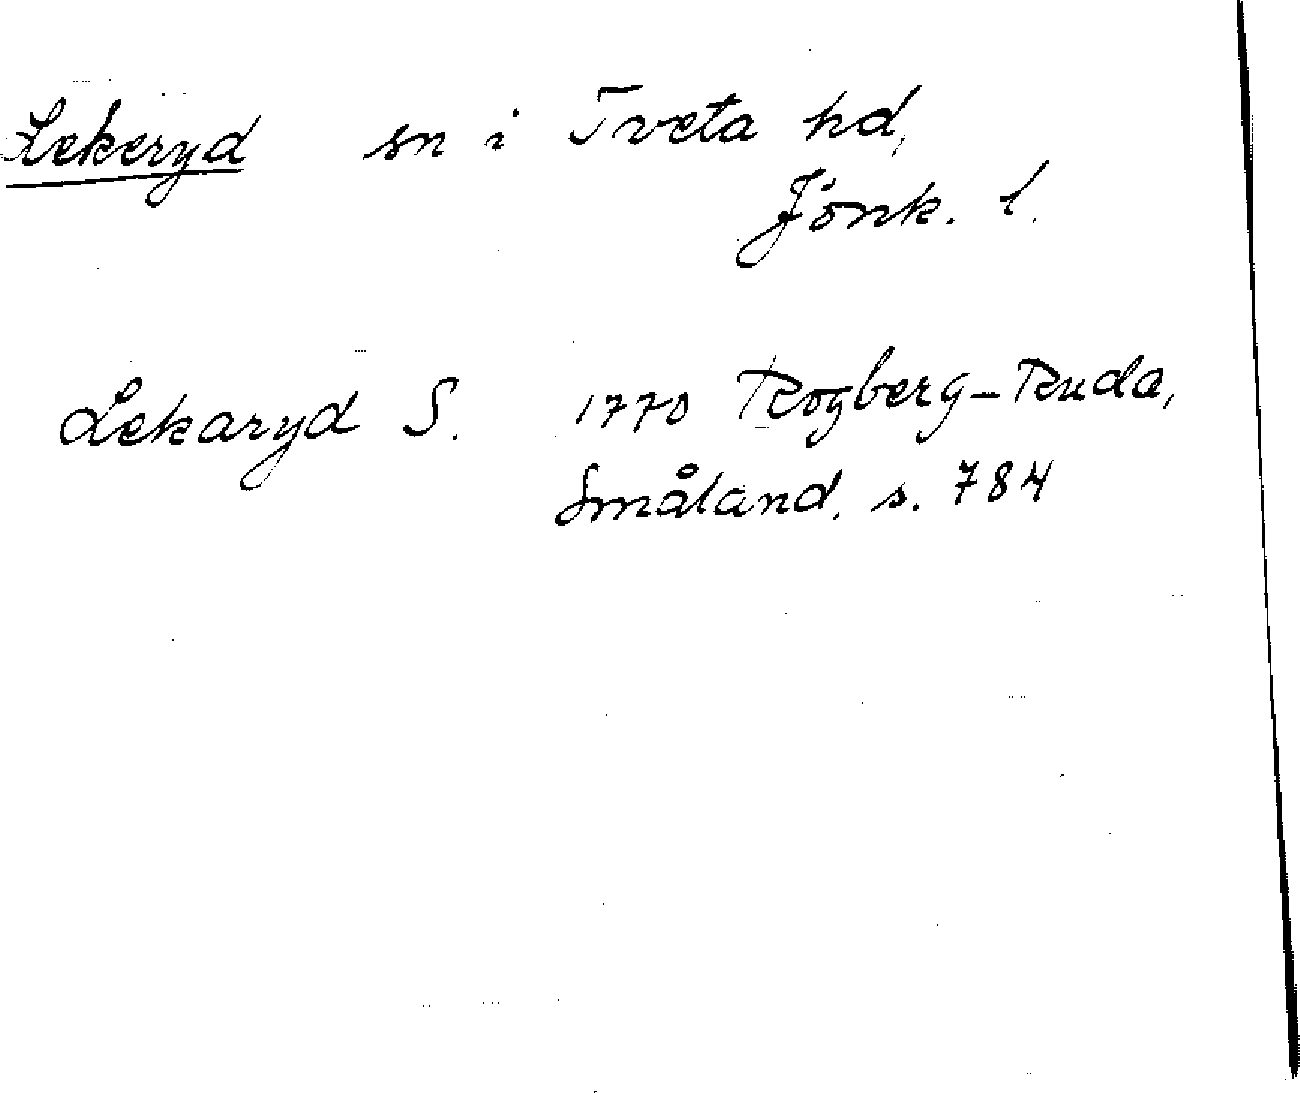 Lekeryd sn i Tveta hd,
Jönk. l.
Lekaryd S. 1770 Rogberg-Ruda,
Småland, s. 784